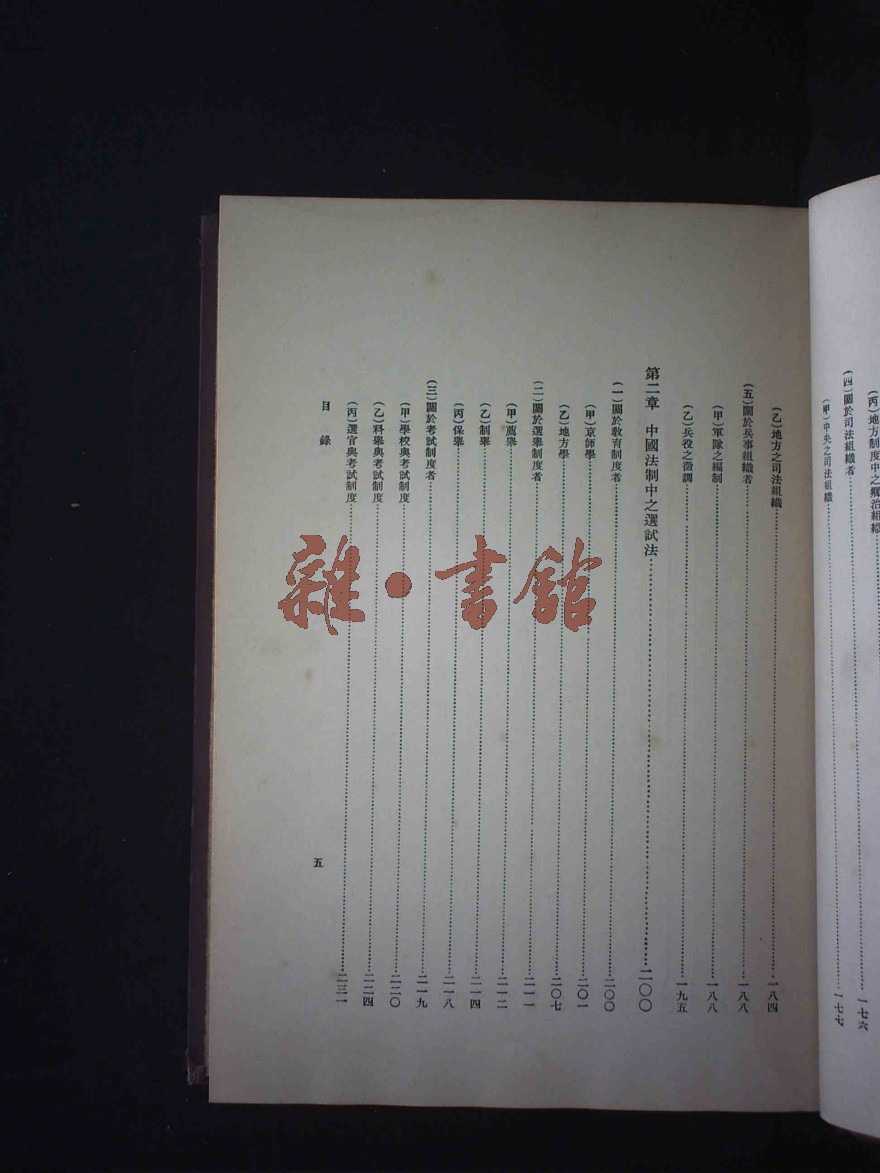 (丙)地方制度中之鄉治組織
(四)關於司法組織者……一七六
(甲)中央之司法組織……一七七
(乙)地方之司法組織……一八四
(五)關於兵事組織者……一八八
(甲)軍隊之編制……一八八
(乙)兵役之徵調……一九五
第二章 中國法制中之選試法……二〇〇
(一)關於敎育制度者……二〇〇
(甲)京師學……二〇一
(乙)地方學……二〇七
(二)關於選舉制度者……二一一
(甲)薦舉……二一二
(乙)制舉……二一四
(丙)保舉……二一八
(三)關於考試制度者……二一九
(甲)學校與考試制度……二二〇
(乙)科舉與考試制度……二二四
(丙)選官與考試制度……二三一
目錄
五
雜·書館